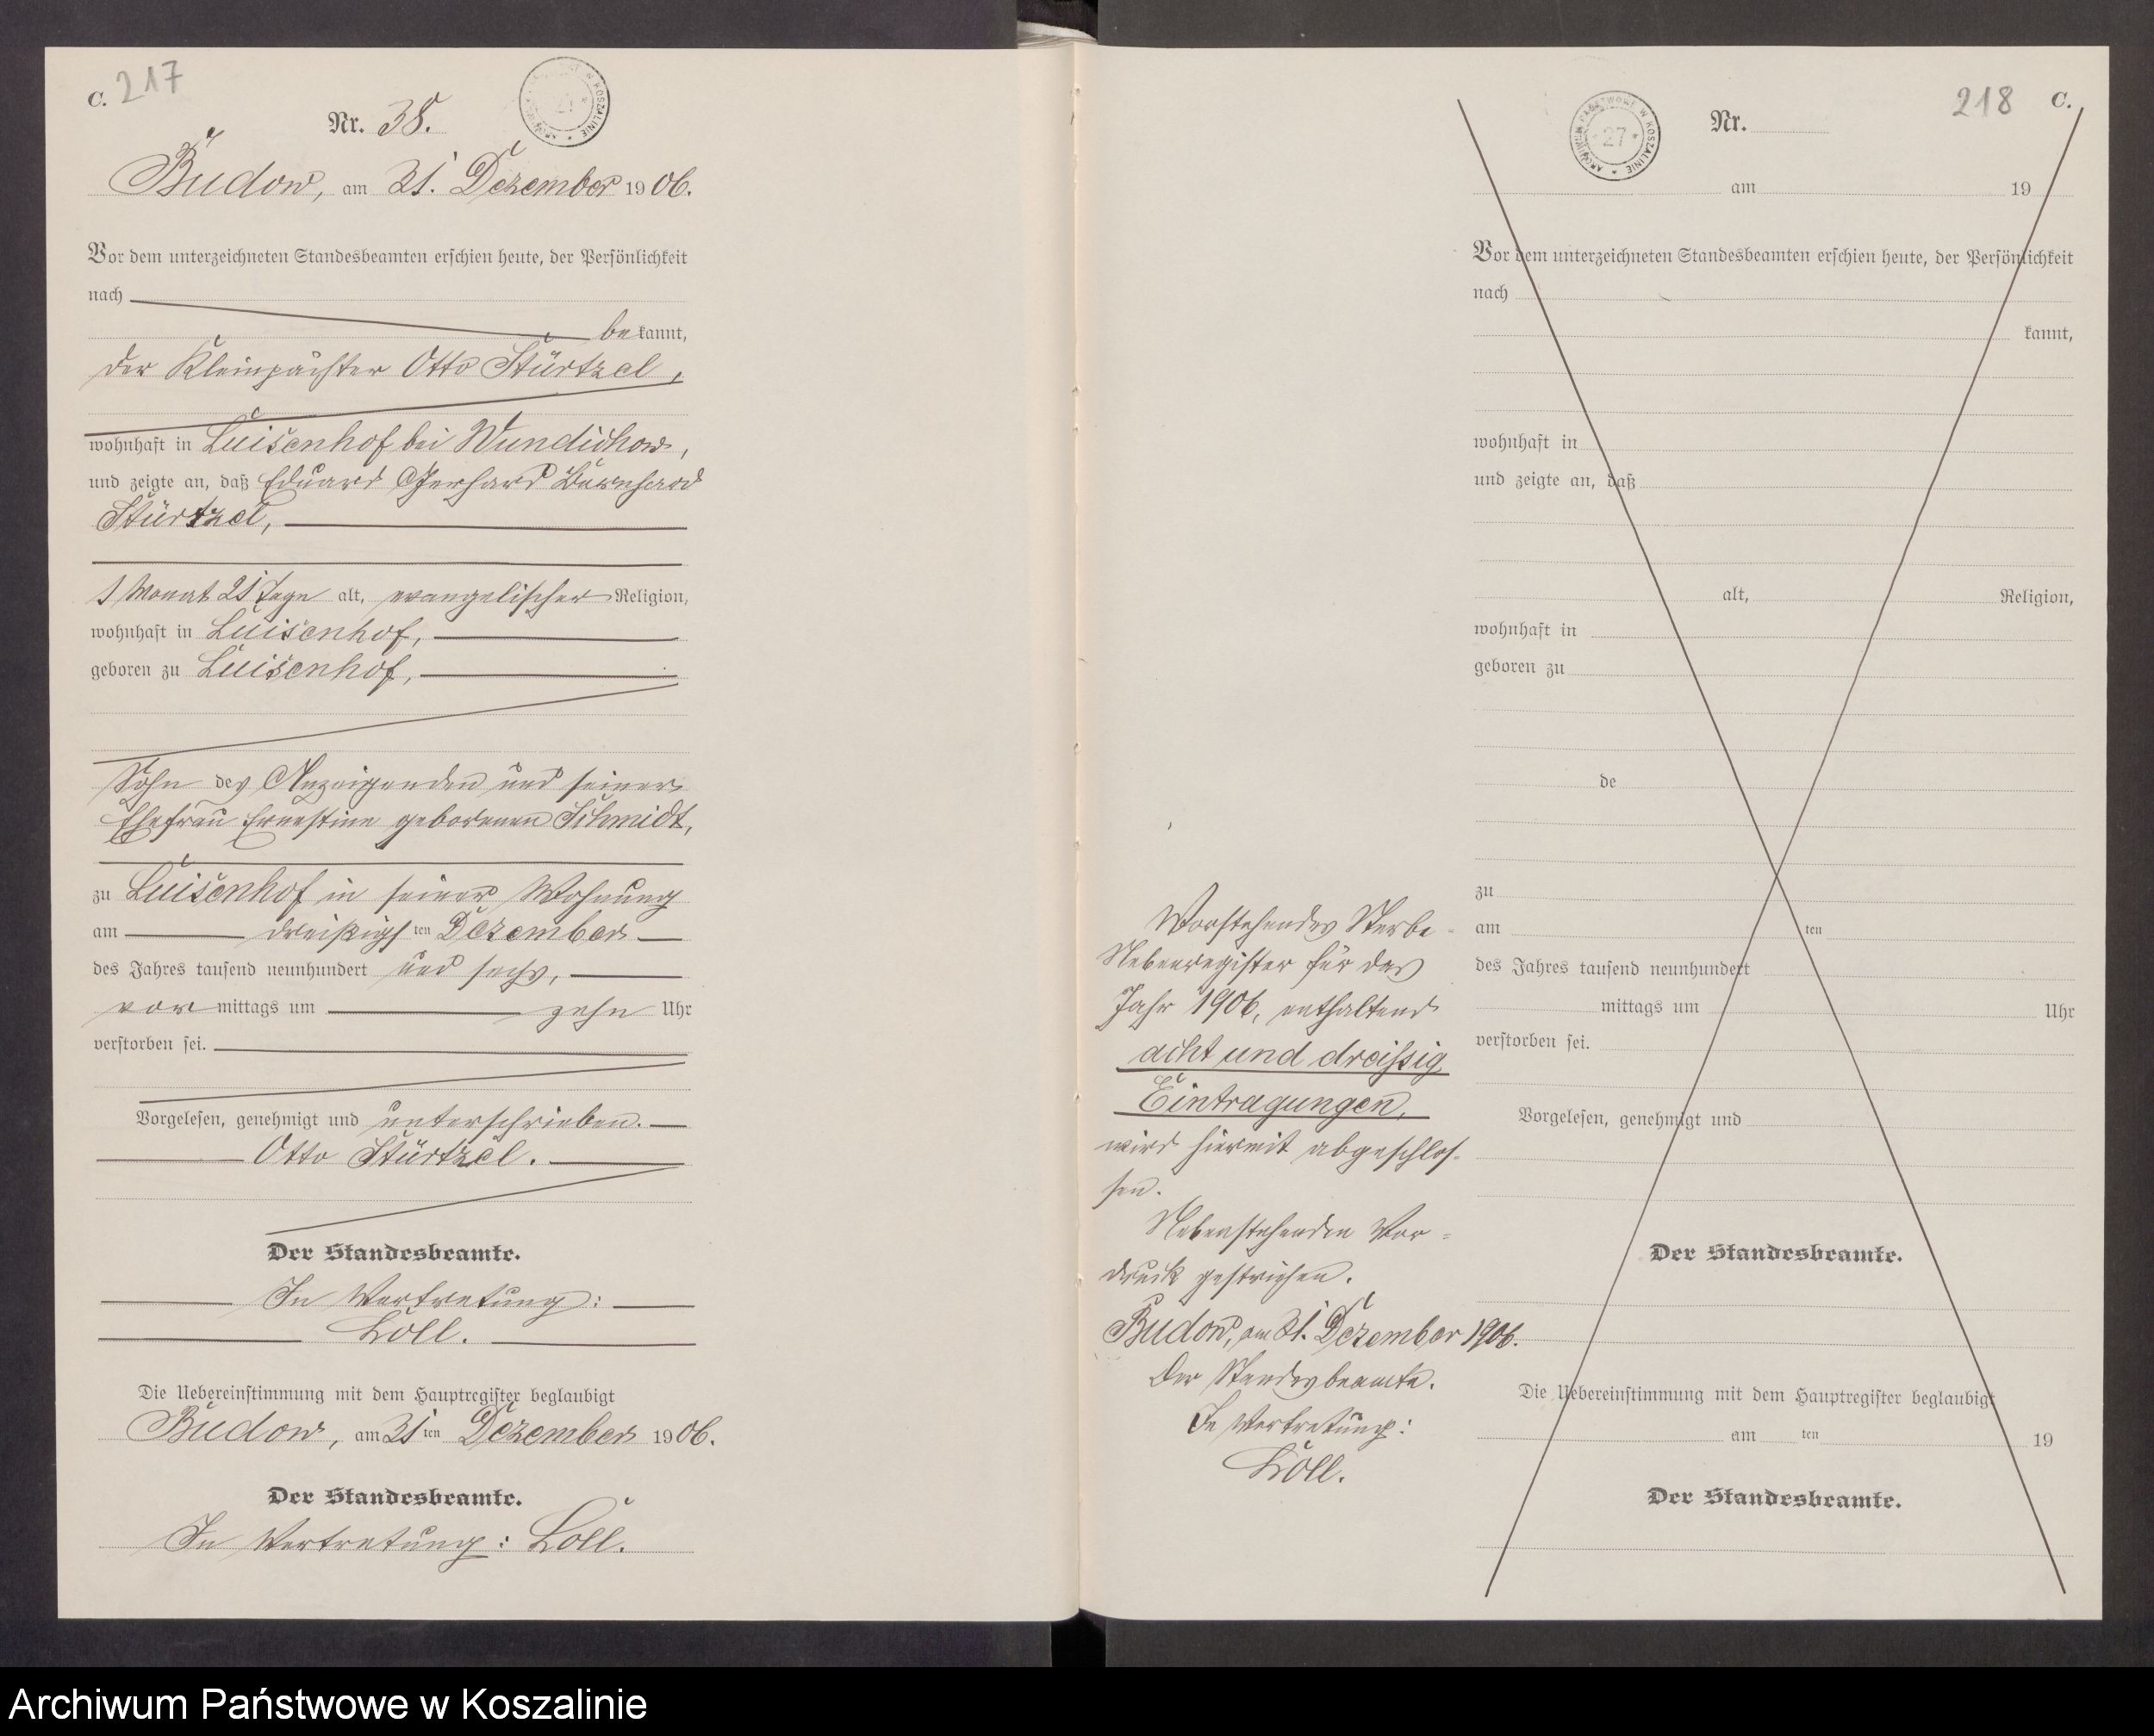 C. 217
Nr. 38.
Budow, am 31. Dezember 1906.
Vor dem unterzeichneten Standesbeamten erschien heute, der Persönlichkeit
nach
bekannt,
der Kleinpächter Otto Stürtzel,
wohnhaft in Luisenhof bei Wundichow,
und zeigte an, daß Eduard Gerhard Bernhard
Stürtzel,
1 Monat 21 Tage alt, evangelischer Religion,
wohnhaft in Luisenhof,
geboren zu Luisenhof,
Sohn des Anzeigenden und seiner
Ehefrau Ernestine geborenen Schmidt,
zu Luisenhof in seiner Wohnung
am dreißigsten Dezember
des Jahres tausend neunhundert und sechs,
vormittags um zehn Uhr
verstorben sei.
Vorgelesen, genehmigt und unterschrieben.
Otto Stürtzel.
Der Standesbeamte.
In Vertretung:
Loll.
Die Uebereinstimmung mit dem Hauptregister beglaubigt
Budow, am 31ten Dezember 1906.
Der Standesbeamte.
In Vertretung: Loll.
Vorstehendes Sterbe-
Nebenregister für das
Jahr 1906, enthaltend
acht und dreissig
Eintragungen,
wird hiermit abgeschlos-
sen.
Nebenstehenden Vor-
druck gestrichen.
Budow, am 31. Dezember 1906.
Der Standesbeamte.
In Vertretung:
Loll.
218 C.
ARCHIWUM PAŃSTWOWE W KOSZALINIE * 27 *
Nr.
am 19
Vor dem unterzeichneten Standesbeamten erschien heute, der Persönlichkeit
nach
kannt,
wohnhaft in
und zeigte an, daß
alt, Religion,
wohnhaft in
geboren zu
de
zu
am ten
des Jahres tausend neunhundert
mittags um Uhr
verstorben sei.
Vorgelesen, genehmigt und
Der Standesbeamte.
Die Uebereinstimmung mit dem Hauptregister beglaubigt
am ten 19
Der Standesbeamte.
Archiwum Państwowe w Koszalinie